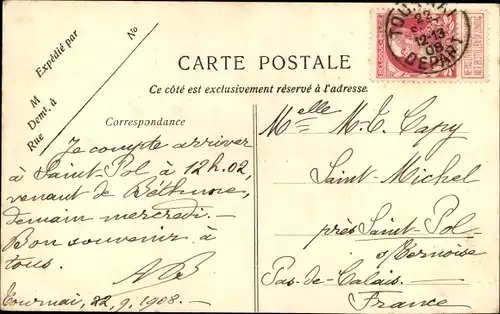 Expédié par
No
M
Demt. à
Rue
TOURNAI
22
12-13
08
DEPART
CARTE POSTALE
Ce côté est exclusivement réservé à l'adresse.
Correspondance
Je compte arriver
à Saint-Pol à 12h.02,
venant de Béthune,
demain mercredi.—
Bon souvenir à
tous.
AB
Tournai, 22.9.1908.
Melle M.T. Capy
Saint-Michel
près Saint-Pol
s/Ternoise
Pas-de-Calais.
France